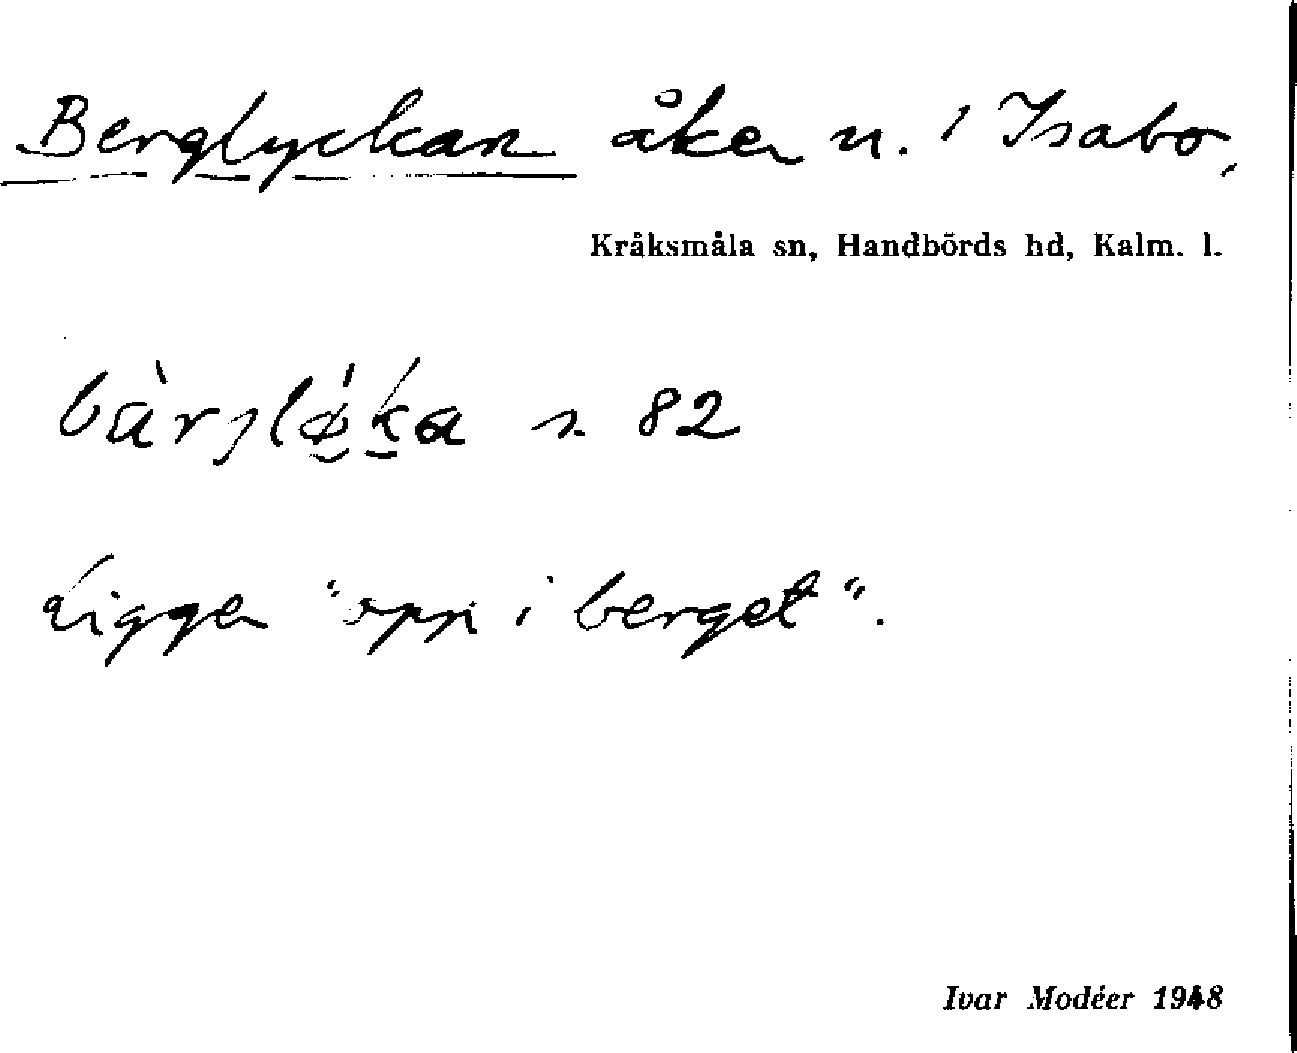 Berglyckan åker n. i Isabo,
Kråksmåla sn, Handbörds hd, Kalm. l.
82
Ligger "opp i berget".
Ivar Modéer 1948